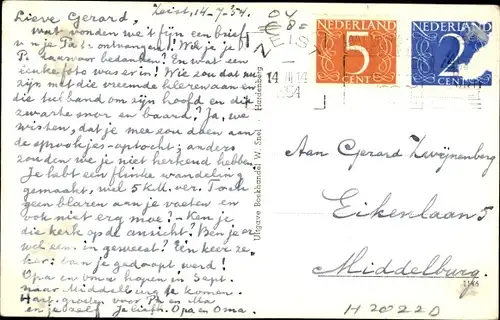 Zeist, 14-7-'54.
Lieve Gerard,
Wat vonden we 't fijn een brief
van je Pa te ontvangen! Wil je je
Pa daarvoor bedanken? En wat een
leuke foto was er in! Wie zou dat nu
zijn met die vreemde kleeren aan en
die tulband om zijn hoofd en die
zwarte snor en baard? Ja, we
wisten, dat je mee zou doen aan
de sprookjes-optocht; anders
zouden we je niet herkend hebben.
Je hebt een flinke wandeling
gemaakt, wel 5 K.M. ver. Toch
geen blaren aan je voeten en
ook niet erg moe? - Ken je
die kerk op de ansicht? Ben je er
wel eens in geweest? Eén keer ze-
ker: ben je gedoopt werd!
Opa en oma hopen in Sept.
naar Middelburg te komen.
Hart. groeten voor Pa en Ma
en je zelf Je liefh. Opa en Oma.
Uitgave Boekhandel W. Snel Hardenberg
ZEIST
14 VII 14
1954
NEDERLAND
5
CENT
NEDERLAND
2
CENT
Aan Gerard Zweijnenberg
Eikenlaan 5
Middelburg.
1146
H 20220